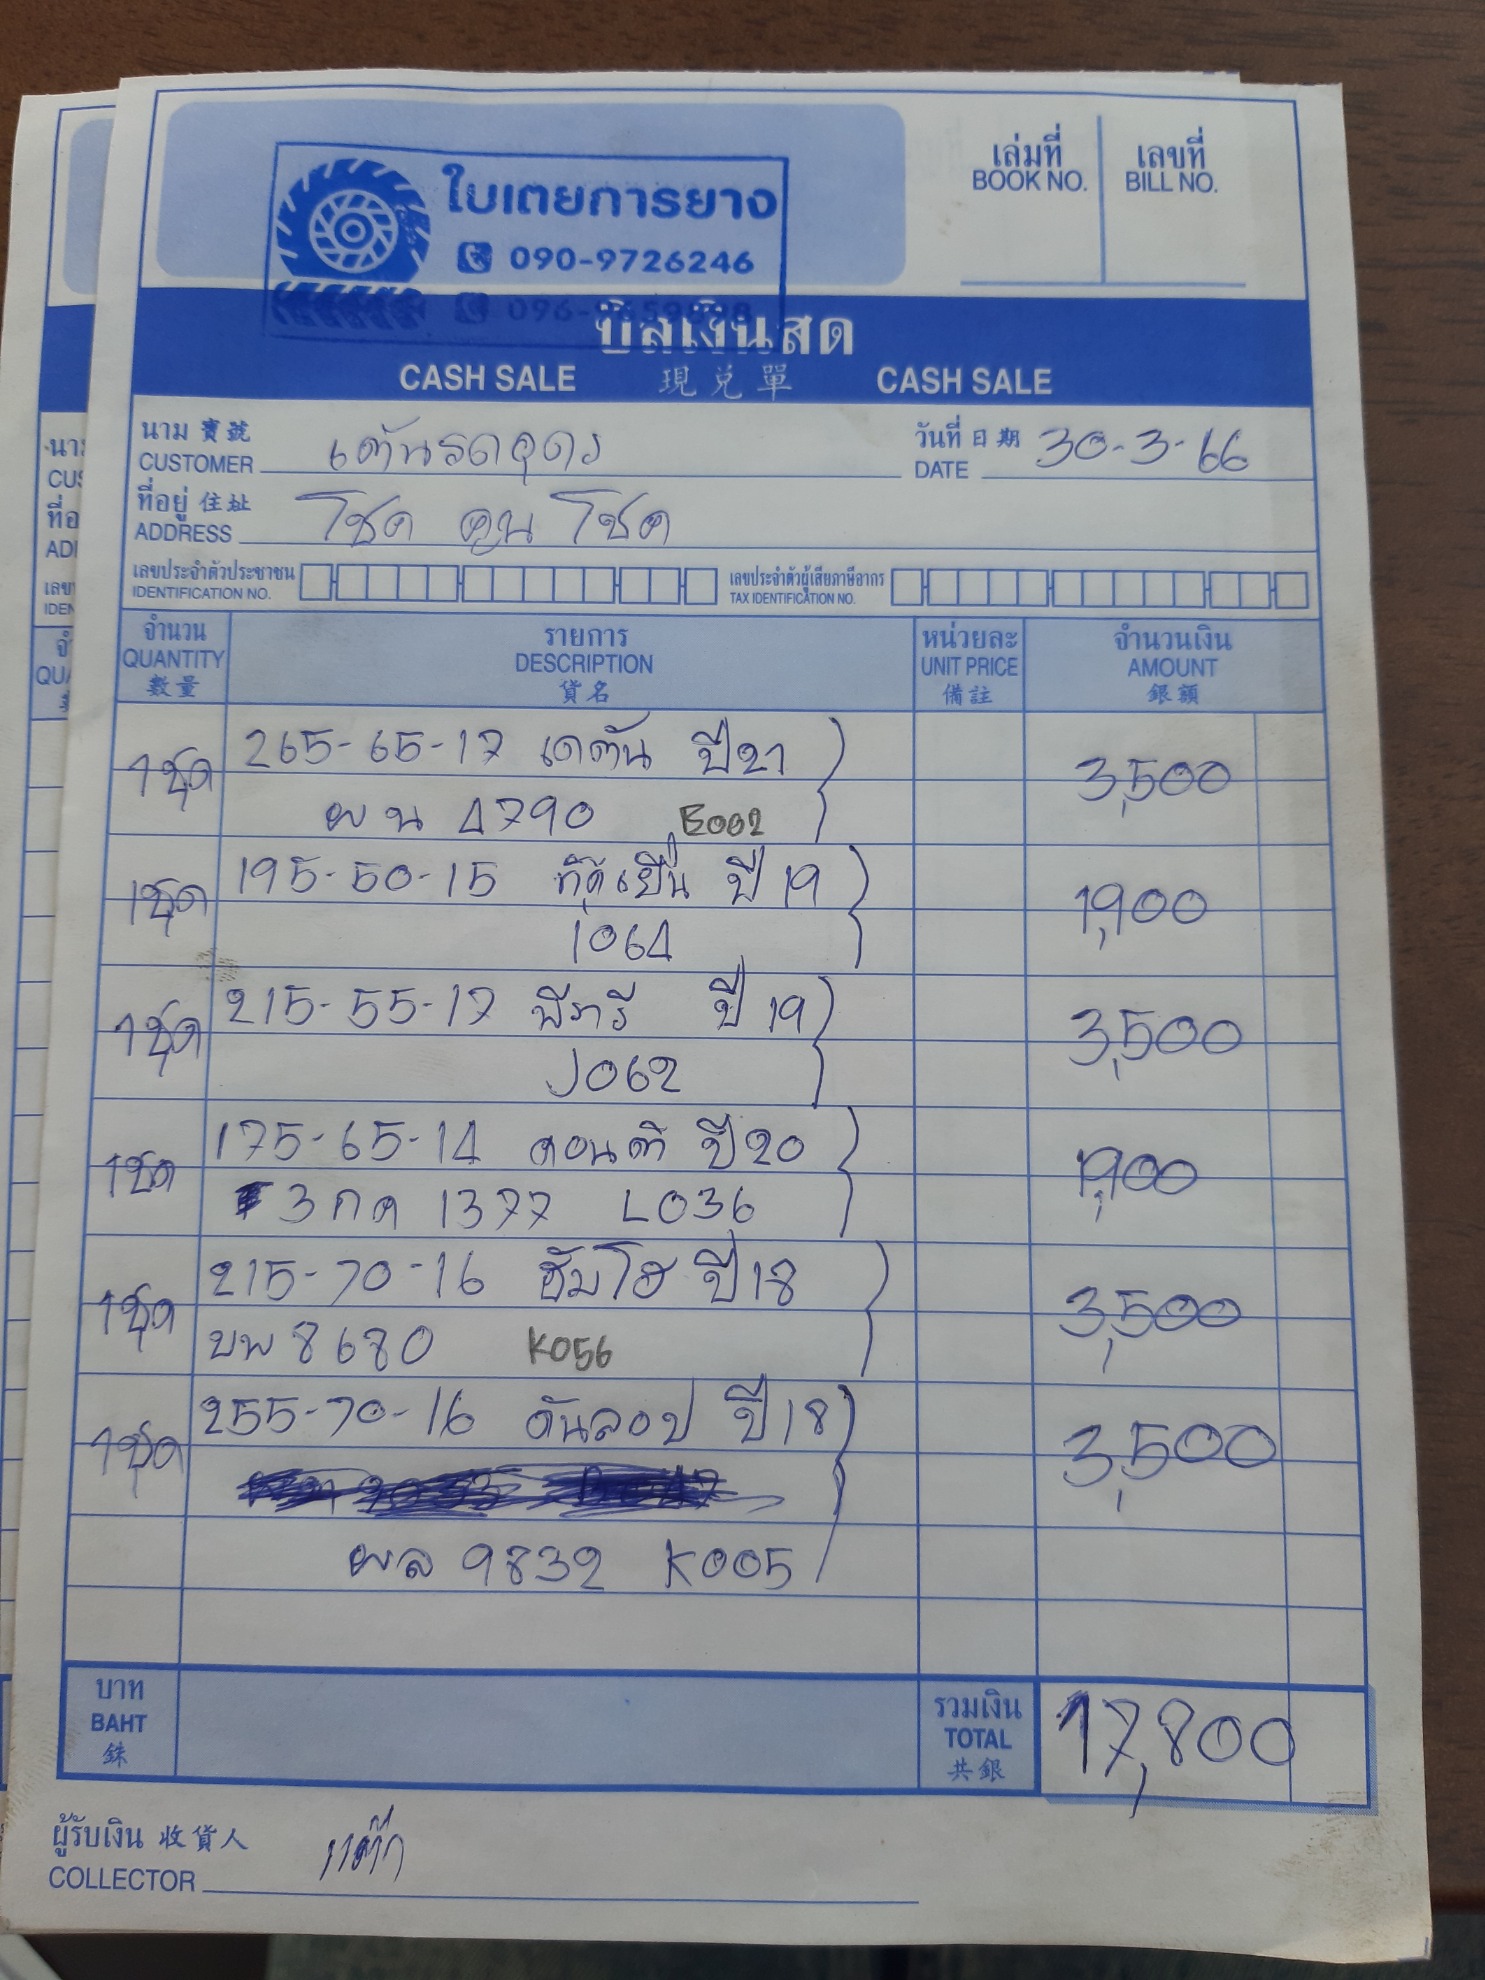 ใบเตยการยาง
090-9726246
เล่มที่ เลขที่
BOOK NO. BILL NO.
บิลเงินสด
CASH SALE 現兌單 CASH SALE
นาม 寶號 วันที่ 日期
CUSTOMER เต้นรถอุดร DATE 30-3-66
ที่อยู่ 住址
ADDRESS โชค คูน โชค
เลขประจำตัวประชาชน เลขประจำตัวผู้เสียภาษีอากร
IDENTIFICATION NO. TAX IDENTIFICATION NO.
จำนวน รายการ หน่วยละ จำนวนเงิน
QUANTITY DESCRIPTION UNIT PRICE AMOUNT
數量 貨名 備註 銀額
1ชุด 265-65-17 เดตัน ปี21 3,500
ผน 4790 E002
1ชุด 195-50-15 ปี 19 1,900
J064
1ชุด 215-55-17 ปี 19 3,500
J062
1ชุด 175-65-14 คอนติ ปี20 1,900
3กด 1377 L036
1ชุด 215-70-16 ฮัมโฮ ปี18 3,500
บพ 8680 K056
1ชุด 255-70-16 ดันลอป ปี 18 3,500
ผล 9832 K005
บาท รวมเงิน
BAHT TOTAL 17,800
銖 共銀
ผู้รับเงิน 收貨人
COLLECTOR